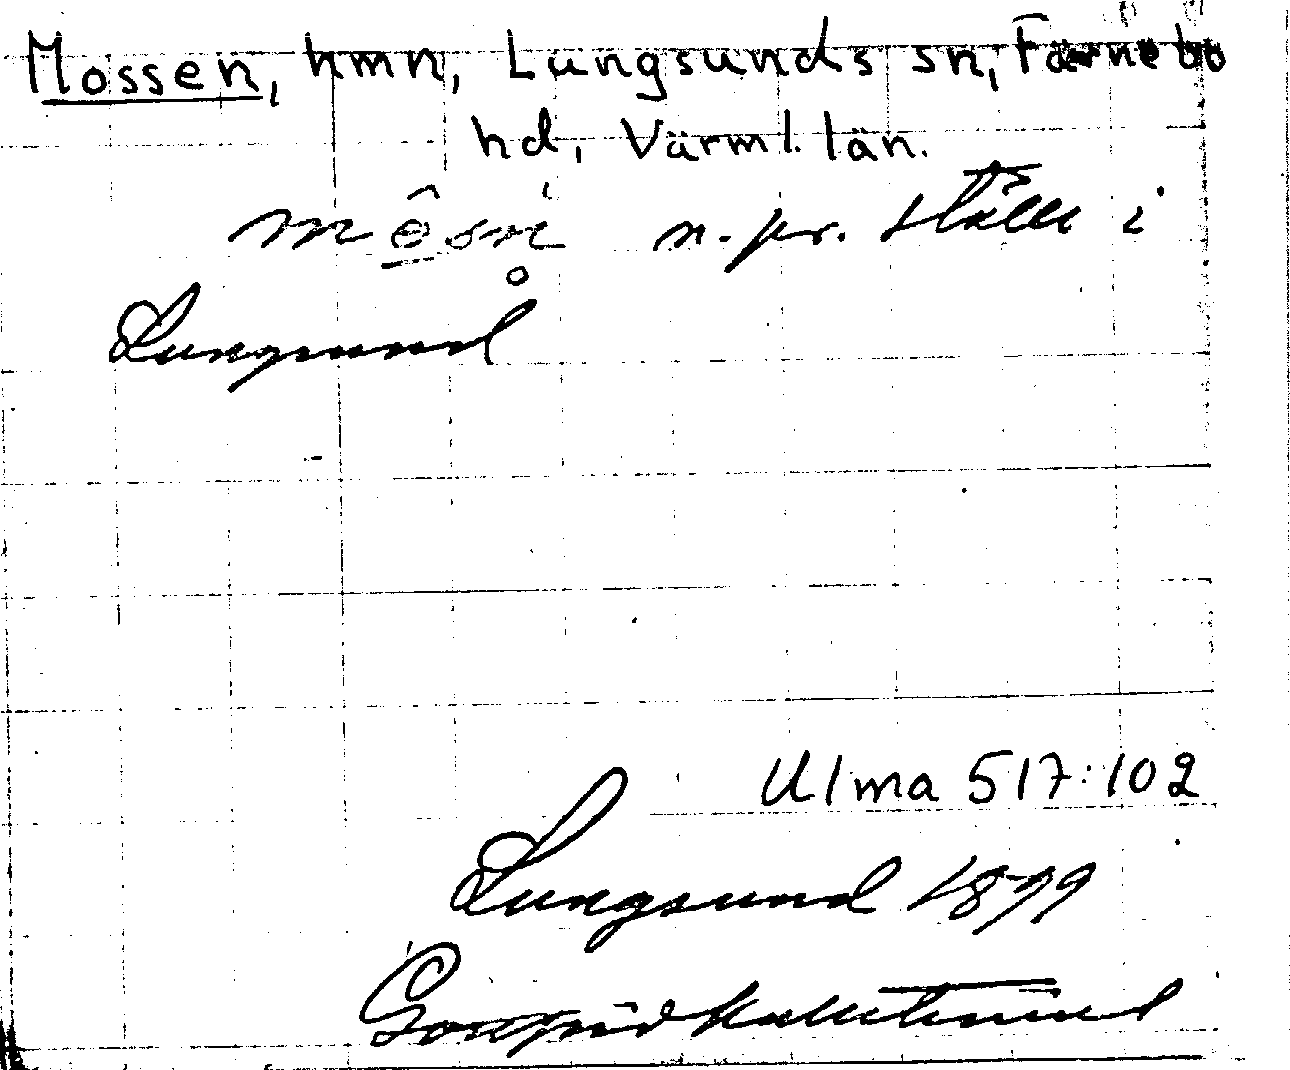 Mossen, hmn, Lungsunds sn, Färnebo
hd, Värml. län.
n. pr. ställe i
Lungsund
Ulma 517:102
Lungsund 1899
Gottfrid Kallstenius